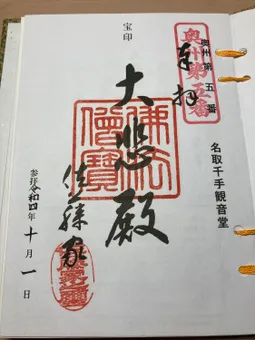 奥州第五番
奥州第五番
奉拝
宝印
大悲殿
佛法僧寶
名取千手観音堂
佐藤家
参拝令和四年十月一日